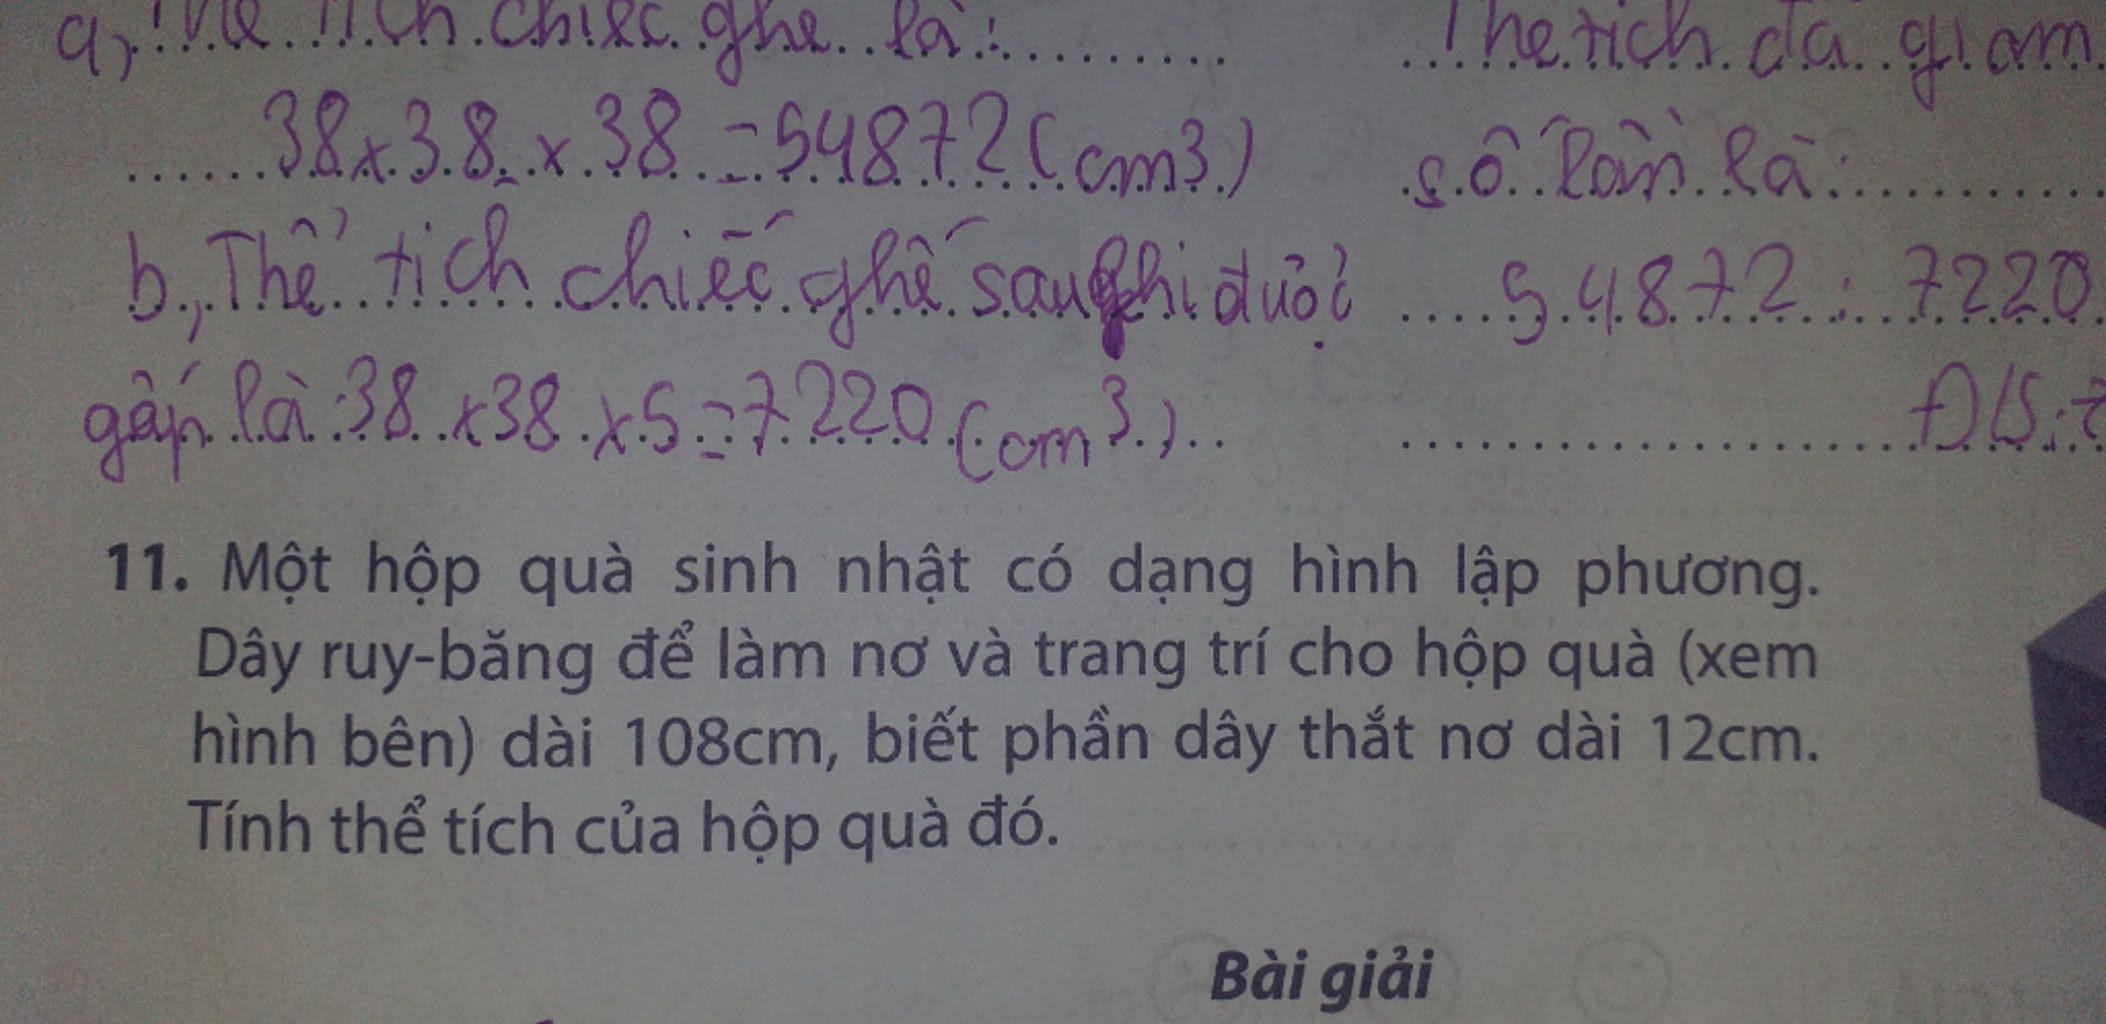 a, Thể tích chiếc ghế là:
38 x 38 x 38 = 54872 (cm3)
b, Thể tích chiếc ghế sau khi được
gấp là 38 x 38 x 5 = 7220 (cm3)
Thể tích đã giảm
số lần là:
54872 : 7220
Đ/S: 7
11. Một hộp quà sinh nhật có dạng hình lập phương.
Dây ruy-băng để làm nơ và trang trí cho hộp quà (xem
hình bên) dài 108cm, biết phần dây thắt nơ dài 12cm.
Tính thể tích của hộp quà đó.
Bài giải